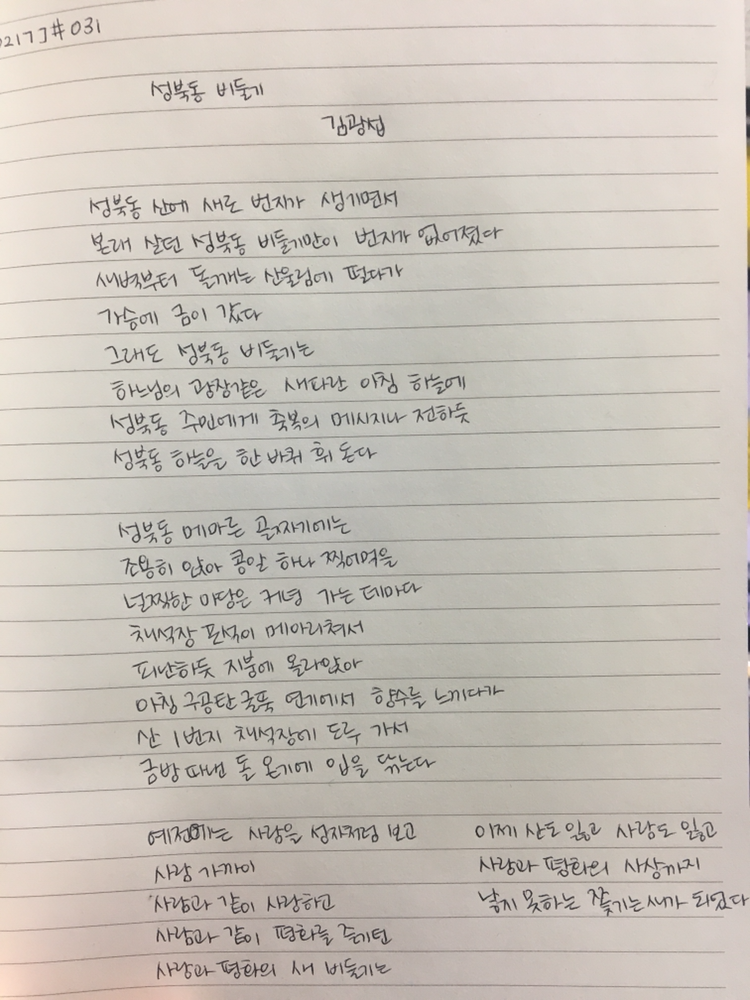 0217]#031
성북동 비둘기
김광섭
성북동 산에 새로 번지가 생기면서
본래 살던 성북동 비둘기만이 번지가 없어졌다
새벽부터 돌깨는 산울림에 떨다가
가슴에 금이 갔다
그래도 성북동 비둘기는
하느님의 광장같은 새파란 아침 하늘에
성북동 주민에게 축복의 메시지나 전하듯
성북동 하늘을 한 바퀴 휘 돈다
성북동 메마른 골짜기에는
조용히 앉아 콩알 하나 찍어먹을
널찍한 마당은 커녕 가는 데마다
채석장 포성이 메아리쳐서
피난하듯 지붕에 올라앉아
아침 구공탄 굴뚝 연기에서 향수를 느끼다가
산 1번지 채석장에 도루 가서
금방 따낸 돌 온기에 입을 닦는다
예전에는 사람을 성자처럼 보고
사람 가까이
사람과 같이 사랑하고
사람과 같이 평화를 즐기던
사랑과 평화의 새 비둘기는
이제 산도 잃고 사람도 잃고
사랑과 평화의 사상까지
낳지 못하는 쫓기는 새가 되었다